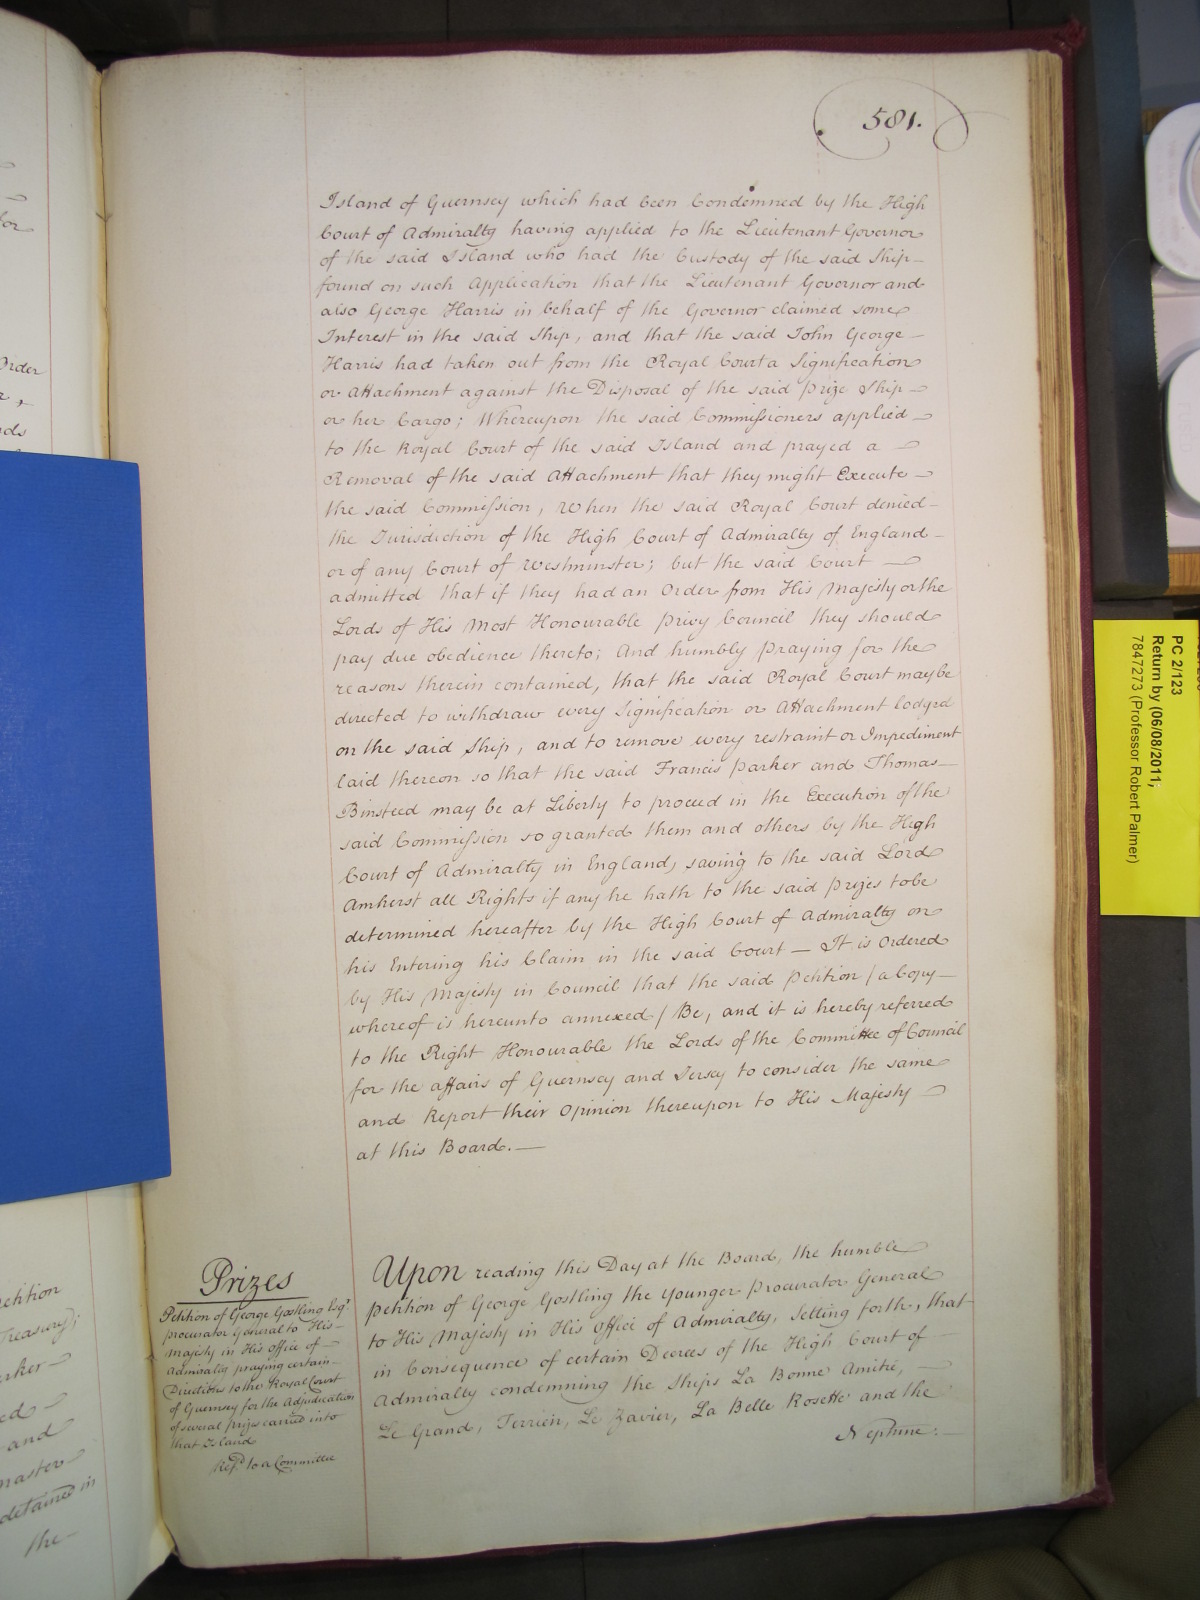 581.
Island of Guernsey which had been Condemned by the High
Court of Admiralty having applied to the Lieutenant Governor
of the said Island who had the Custody of the said Ship
found on such Application that the Lieutenant Governor and
also George Harris in behalf of the Governor claimed some
Interest in the said Ship, and that the said John George
Harris had taken out from the Royal Court a Signification
or Attachment against the Disposal of the said Prize Ship
or her Cargo; Whereupon the said Commissioners applied
to the Royal Court of the said Island and prayed a
Removal of the said Attachment that they might Execute
the said Commission, When the said Royal Court denied
the Jurisdiction of the High Court of Admiralty of England
or of any Court of Westminster; but the said Court
admitted that if they had an Order from His Majesty or the
Lords of His Most Honourable Privy Council they should
pay due obedience thereto; And humbly Praying for the
reasons therein contained, that the said Royal Court may be
directed to withdraw every Signification or Attachment lodged
on the said Ship, and to remove every restraint or Impediment
laid thereon so that the said Francis Parker and Thomas
Binsteed may be at Liberty to proceed in the Execution of the
said Commission so granted them and others by the High
Court of Admiralty in England, saving to the said Lord
Amherst all Rights if any he hath to the said Prizes to be
determined hereafter by the High Court of Admiralty on
his Entering his Claim in the said Court — It is Ordered
by His Majesty in Council that the said Petition / a Copy
whereof is hereunto annexed / Be, and it is hereby referred
to the Right Honourable the Lords of the Committee of Council
for the affairs of Guernsey and Jersey to consider the same
and Report their Opinion thereupon to His Majesty
at this Board. —
Prizes
Petition of George Gostling Esqr
Procurator General to His
Majesty in His Office of
Admiralty praying certain
Directions to the Royal Court
of Guernsey for the Adjudication
of several prizes carried into
that Island
Refd. to a Committee
Upon reading this Day at the Board, the humble
Petition of George Gostling the Younger Procurator General
to His Majesty in His Office of Admiralty, Setting forth, that
in Consequence of certain Decrees of the High Court of
Admiralty condemning the Ships La Bonne Amitié,
Le Grand, Terrien, Le Zavier, La Belle Rosette and the
Neptune:
Order
ds
etition
Treasury);
rker
ed
and
master
detained in
the
PC 2/123
Return by (06/08/2011;
7847273 (Professor Robert Palmer)